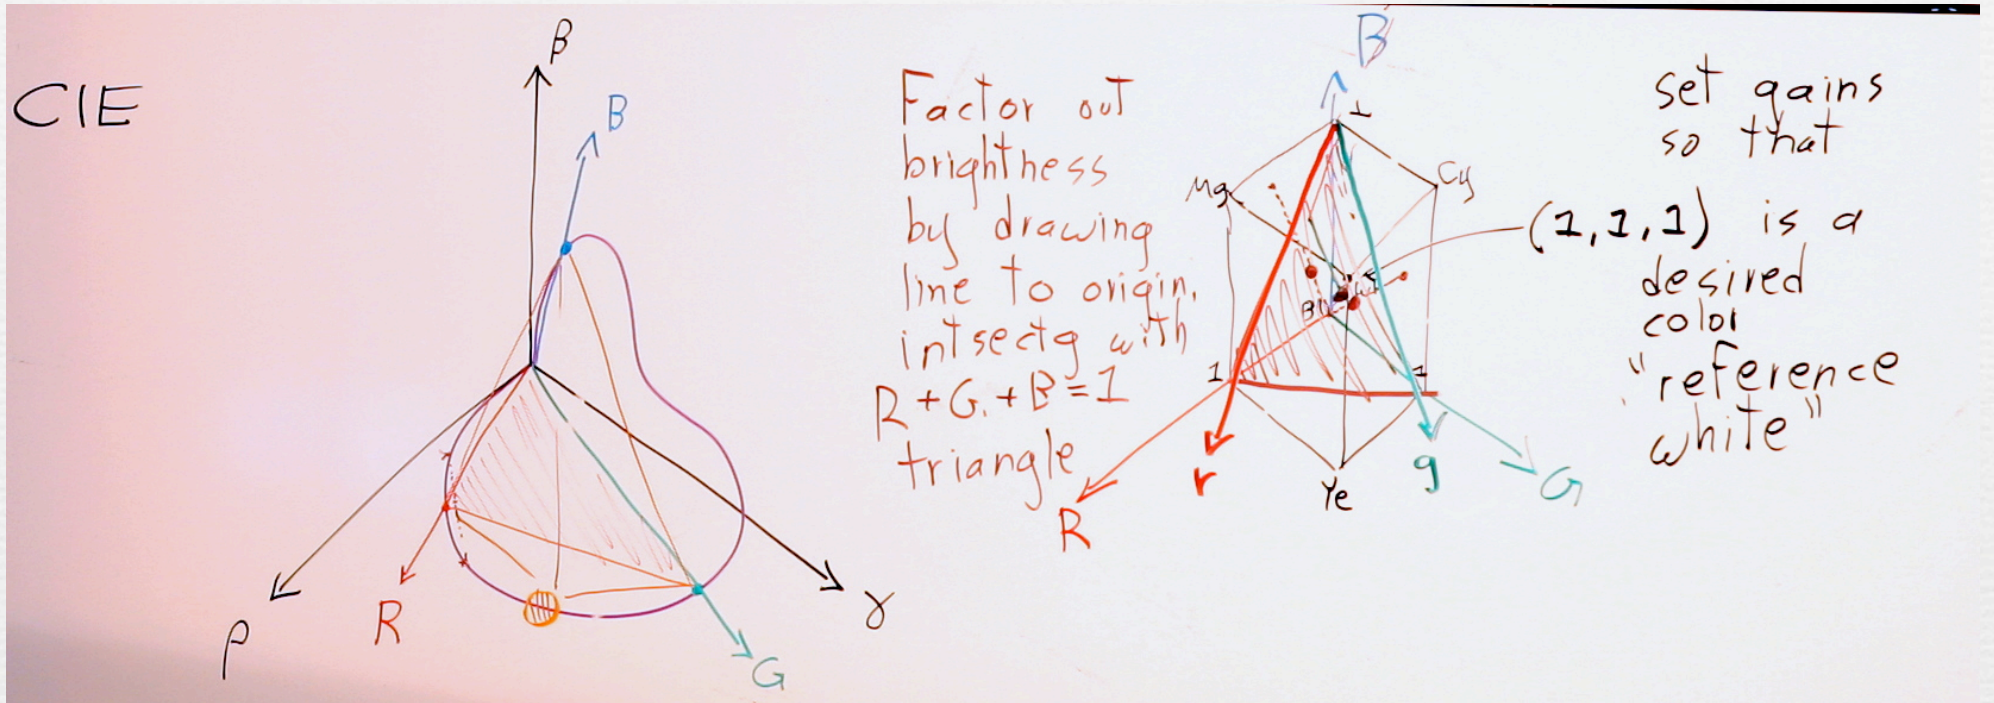 CIE
β
B
ρ
R
G
γ
Factor out
brightness
by drawing
line to origin,
intsectg with
R+G+B=1
triangle
B
1
Mg
Cy
Bl
W
1
1
r
g
R
Ye
G
set gains
so that
(1,1,1) is a
desired
color
"reference
white"